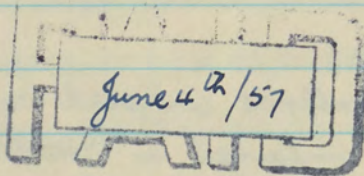 PAID
June 4th/57